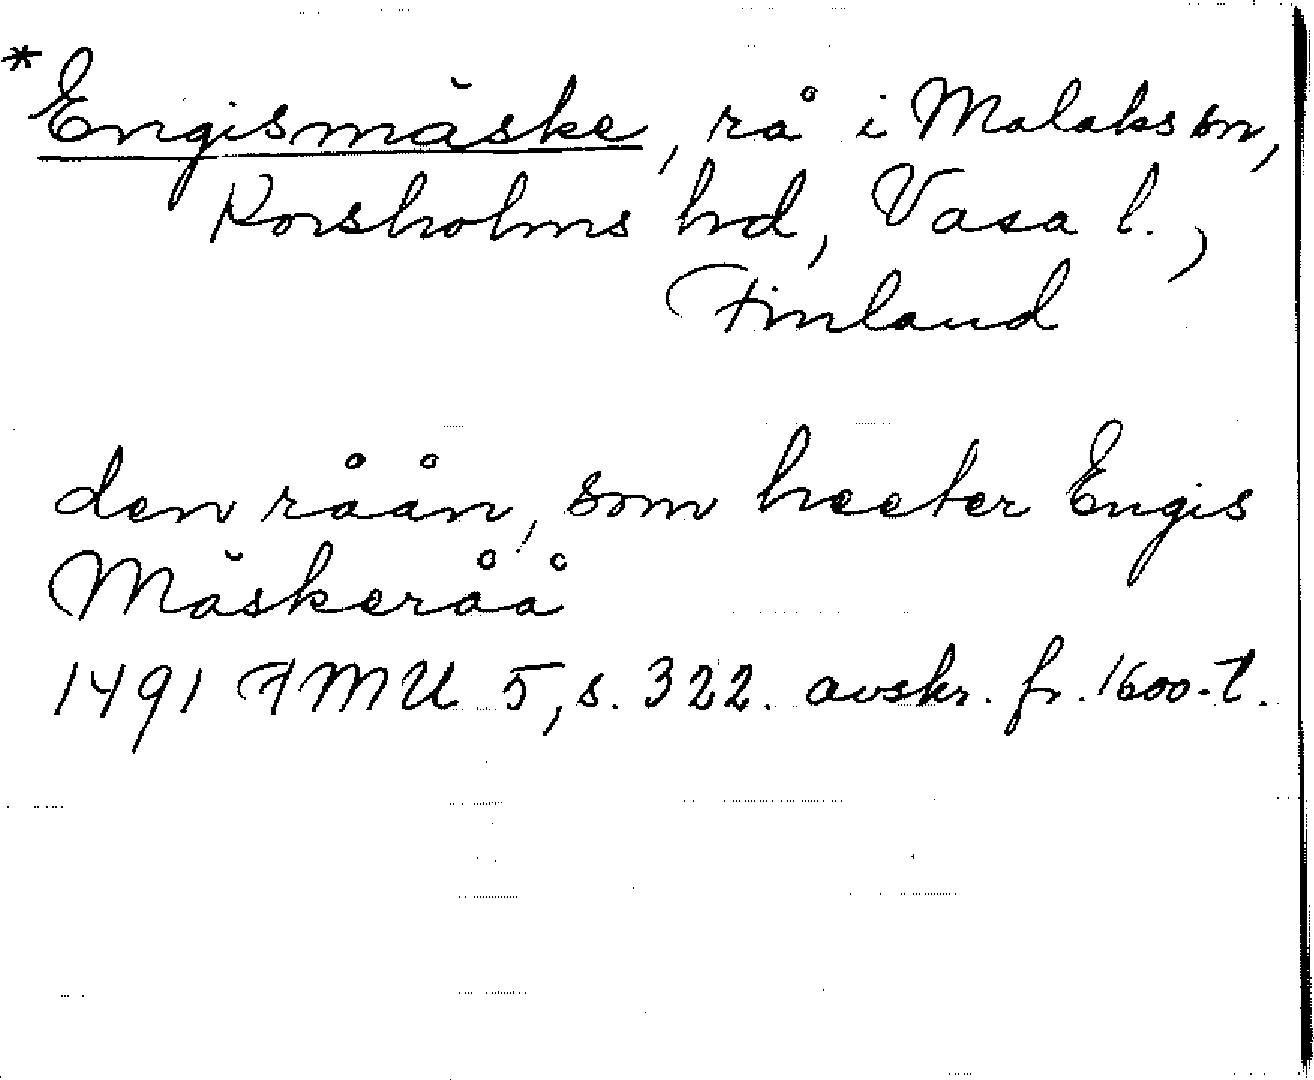 *Engismäske, rå i Malaks sn,
Korsholms hd, Vasa l.,
Finland
den råån, som heeter Engis
Mäskeråå
1491 FMU 5, s. 322. avskr. fr. 1600-t.